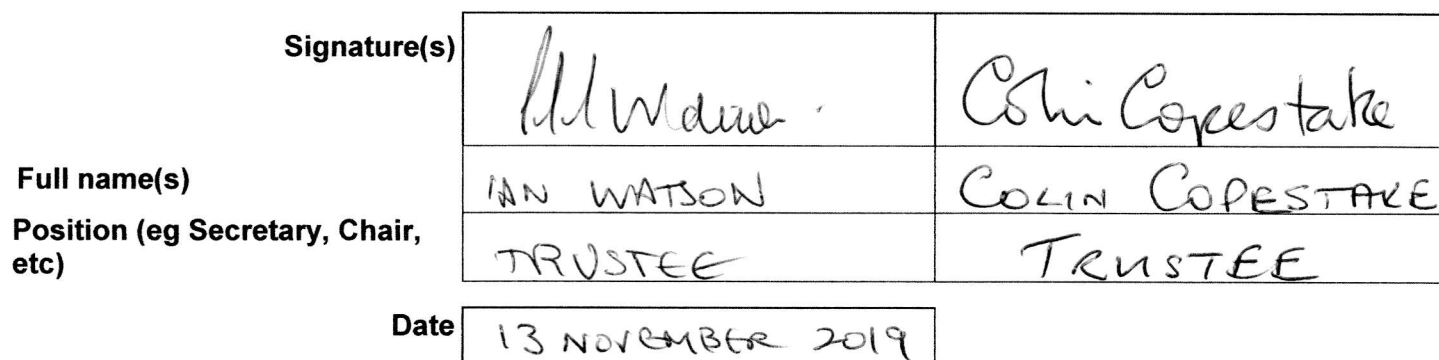 Signature(s)
Colin Copestake
Full name(s) IAN WATSON COLIN COPESTAKE
Position (eg Secretary, Chair,
etc) TRUSTEE TRUSTEE
Date 13 NOVEMBER 2019